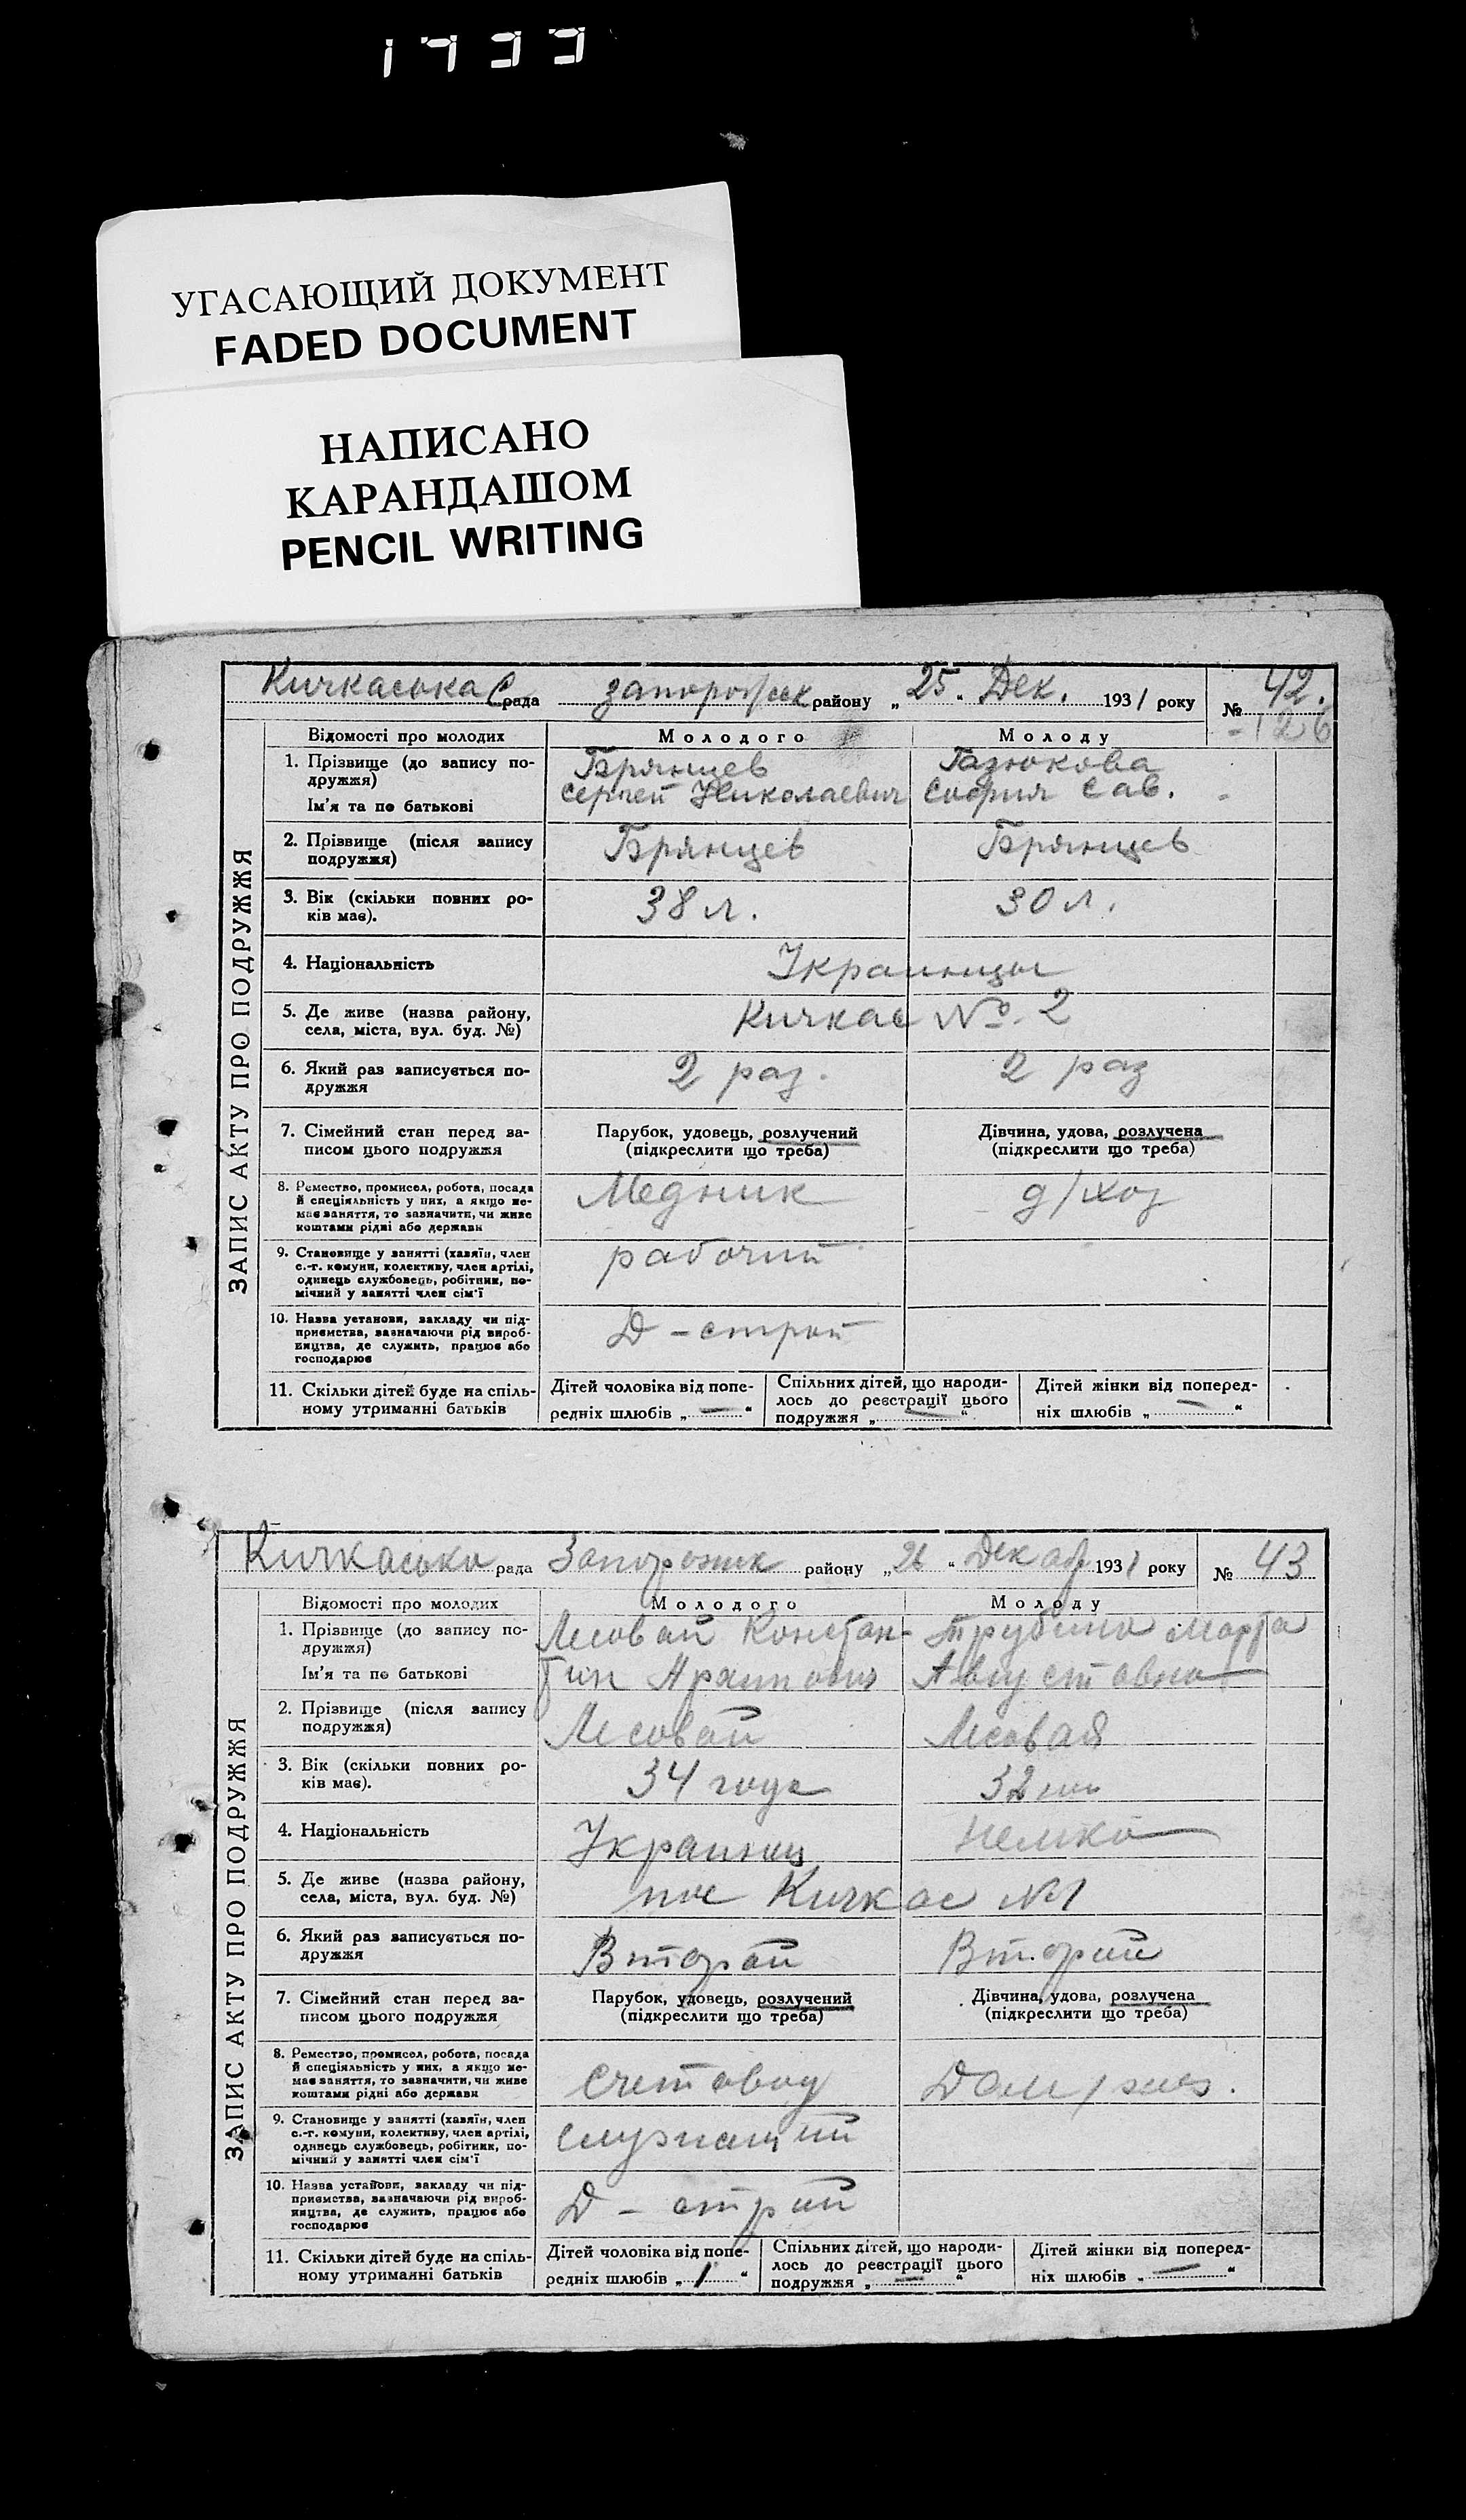 УГАСАЮЩИЙ ДОКУМЕНТ
FADED DOCUMENT
НАПИСАНО
КАРАНДАШОМ
PENCIL WRITING
ЗАПИС АКТУ ПРО ПОДРУЖЖЯ
Кичкаська С рада запорожск району „25“ Дек. 1931 року № 42.
126
Відомості про молодих Молодого Молоду
1. Прізвище (до запису по- Брянцев Газюкова
дружжя)
Ім'я та по батькові Сергей Николаевич София Сав.
2. Прізвище (після запису Брянцев Брянцев
подружжя)
3. Вік (скільки повних ро- 38 л. 30 л.
ків має).
4. Національність Украинцы
5. Де живе (назва району, Кичкас № 2
села, міста, вул. буд. №)
6. Який раз записується по- 2 раз. 2 раз
дружжя
7. Сімейний стан перед за- Парубок, удовець, розлучений Дівчина, удова, розлучена
писом цього подружжя (підкреслити що треба) (підкреслити що треба)
8. Ремество, промисел, робота, посада Медник д/хоз
й спеціяльність у них, а якщо не-
має заняття, то зазначити, чи живе
коштами рідні або держави
9. Становище у занятті (хазяїн, член рабочий
с.-г. комуни, колективу, член артілі,
одинець службовець, робітник, по-
мічний у занятті член сім'ї
10. Назва установи, закладу чи під- Д – строй
приємства, зазначаючи рід вироб-
ництва, де служить, працює або
господарює
11. Скільки дітей буде на спіль- Дітей чоловіка від попе- Спільних дітей, що народи- Дітей жінки від поперед-
ному утриманні батьків редніх шлюбів „—“ лось до реєстрації цього ніх шлюбів „—“
подружжя „—“
ЗАПИС АКТУ ПРО ПОДРУЖЖЯ
Кичкаська рада Запорожск району „26“ Декабр 1931 року № 43
Відомості про молодих Молодого Молоду
1. Прізвище (до запису по- Лесовой Констан- Трубина Марта
дружжя)
Ім'я та по батькові тин Архипович Августовна
2. Прізвище (після запису Лесовой Лесовая
подружжя)
3. Вік (скільки повних ро- 34 года 32
ків має).
4. Національність Украинец Немка
5. Де живе (назва району, пос Кичкас №1
села, міста, вул. буд. №)
6. Який раз записується по- Второй Второй
дружжя
7. Сімейний стан перед за- Парубок, удовець, розлучений Дівчина, удова, розлучена
писом цього подружжя (підкреслити що треба) (підкреслити що треба)
8. Ремество, промисел, робота, посада Счетовод Дом/хоз.
й спеціяльність у них, а якщо не-
має заняття, то зазначити, чи живе
коштами рідні або держави
9. Становище у занятті (хазяїн, член Служащий
с.-г. комуни, колективу, член артілі,
одинець службовець, робітник, по-
мічний у занятті член сім'ї
10. Назва установи, закладу чи під- Д – строй
приємства, зазначаючи рід вироб-
ництва, де служить, працює або
господарює
11. Скільки дітей буде на спіль- Дітей чоловіка від попе- Спільних дітей, що народи- Дітей жінки від поперед-
ному утриманні батьків редніх шлюбів „1“ лось до реєстрації цього ніх шлюбів „—“
подружжя „—“